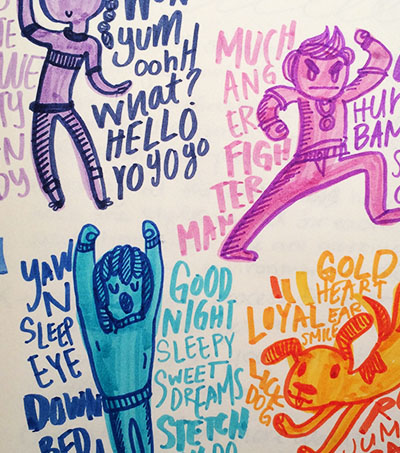 yum
oohH
what?
HELLO
YOYOGO
MUCH
ANG
ER
FIGH
TER
MAN
YAW
N
SLEEP
EYE
DOWN
BED
GOOD
NIGHT
SLEEPY
SWEET
DREAMS
STETCH
GOLD
HEART
LOYAL EAR
SMILE
LICK
DOG